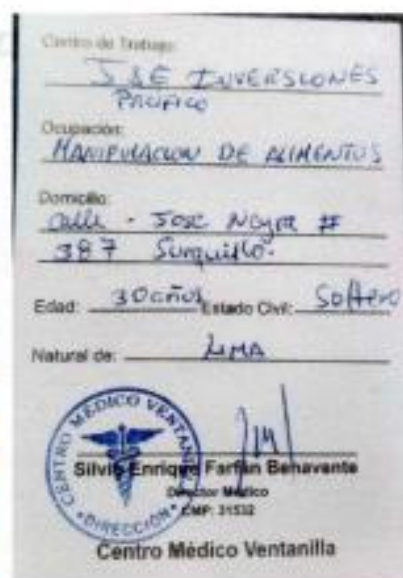 Centro de Trabajo:
J & E INVERSIONES
PACIFICO
Ocupación:
MANIPULACION DE ALIMENTOS
Domicilio:
Calle - Jose Neyra #
387 Surquillo.
Edad: 30 años Estado Civil: Soltero
Natural de: LIMA
CENTRO MÉDICO VENTANILLA
DIRECCIÓN
Silvio Enrique Farfán Benavente
Director Médico
CMP: 31532
Centro Médico Ventanilla